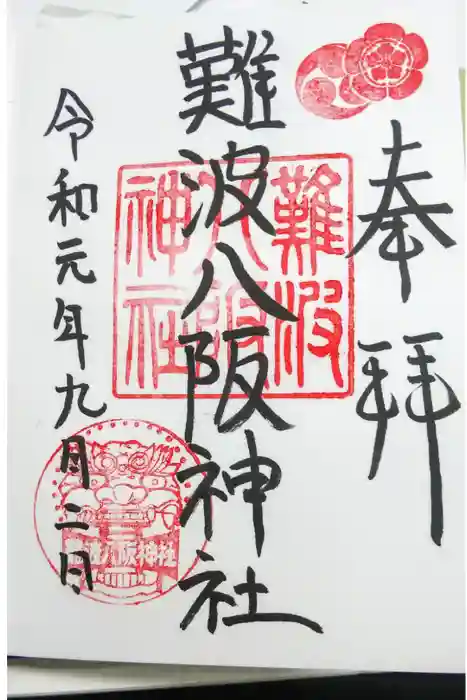 奉拝
難波八阪神社
令和元年九月二日
難波
八阪
神社
難波八阪神社